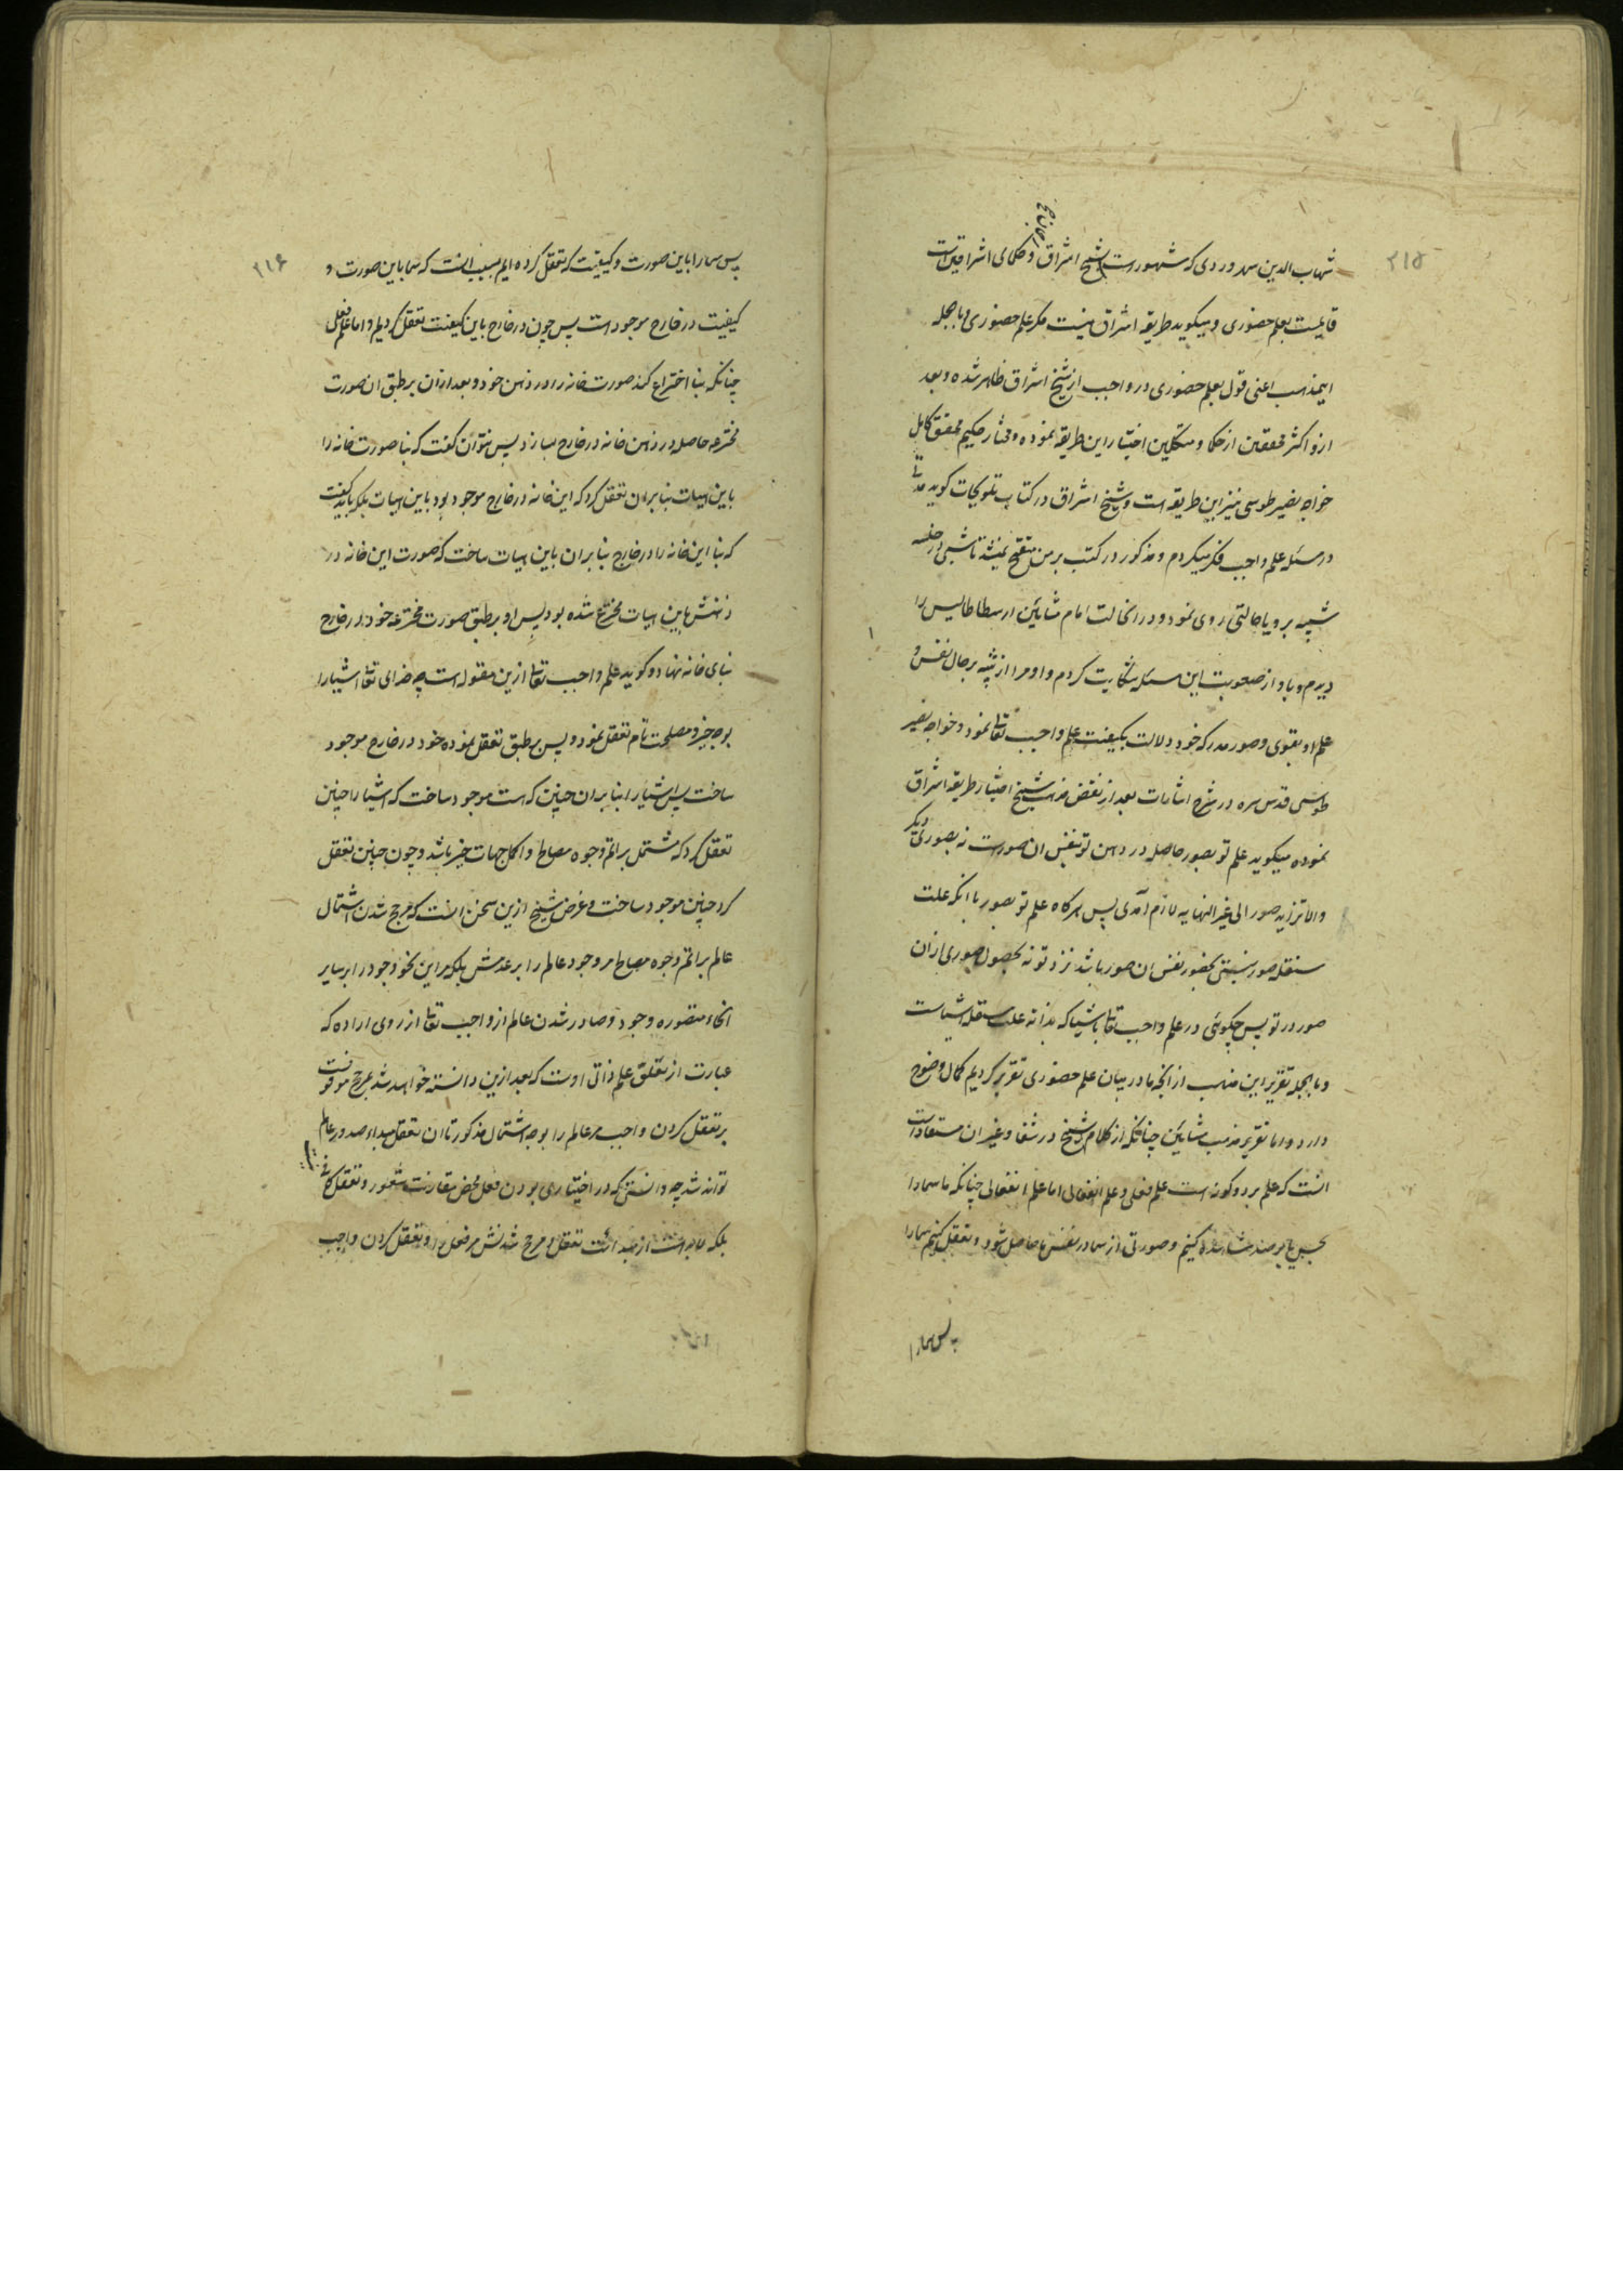 ۲۱۵
شهاب الدین سهروردی که مشهور است بشیخ اشراق و حکمای اشراقین است
قایلست بعلم حضوری و میگوید طریقه اشراق نیست مگر علم حضوری و بالجمله
ایمذهب اعنی قول بعلم حضوری در واجب از شیخ اشراق ظاهر شده و بعد
ازو اکثر محققین از حکما و متکلمین اختیار این طریقه نموده و مختار حکیم محقق کامل
خواجه نصیر طوسی نیز این طریقه است و شیخ اشراق در کتاب تلویحات گوید مدتی
در مسئله علم واجب فکر میکردم و مذکور در کتب بر من منقح نمیشد تا شبی در خلسه
شبیه برویا حالتی روی نمود و در انحالت امام مشائین ارسطاطالیس را
دیدم و با او از صعوبت این مسئله شکایت کردم و او مرا از تنبه بر حال نفس و
علم او بقوی و صور مدرکه خود دلالت بکیفیت علم واجب تعالی نمود و خواجه نصیر
طوسی قدس سره در شرح اشارات بعد از نقض مذهب شیخ اختیار طریقه اشراق
نموده میگوید علم تو بصور حاصله در ذهن تو بنفس ان صورست نه بصوری دیکر
والا تزاید صور الی غیر النهایه لازم آمدی پس هرگاه علم تو بصور با انکه علت
مستقله صور نیستی بحضور نفس ان صور باشد نزد تو نه بحصول صوری از ان
صور در تو پس چگوئی در علم واجب تعالی باشیا که بذاته علت مستقله اشیاست
و بالجمله تقریر این مذهب از انچه ما در بیان علم حضوری تقریر کردیم کمال وضوح
دارد و اما تقریر مذهب مشایین چنانکه از کلام شیخ در شفا و غیر ان مستفاد است
انست که علم بر دو کونه است علم فعلی و علم انفعالی اما علم انفعالی چنانکه ما سما را
بحس یا برصد مشاهده کنیم و صورتی از سما در نفس ما حاصل شود و تعقل کنیم سما را
پس سما را
۲۱۶
پس سما را باین صورت و کیفیت که تعقل کرده ایم بسبب انست که سما باین صورت و
کیفیت در خارج موجود است پس چون در خارج باین کیفیت تعقل کردیم و اما علم فعلی
چنانکه بنا اختراع کند صورت خانه را در ذهن خود و بعد از ان بر طبق ان صورت
مخترعه حاصله در ذهن خانه در خارج بسازد پس نتوان گفت که بنا صورت خانه را
باین هیات بنا بر ان تعقل کرد که این خانه در خارج موجود بود باین هیات بلکه باید گفت
که بنا این خانه را در خارج بنا بر ان باین هیات ساخت که صورت این خانه در
ذهنش باین هیات مخترع شده بود پس او بر طبق صورت مخترعه خود در خارج
بنای خانه نهاد و گوید علم واجب تعالی ازین مقوله است چه خدای تعالی اشیا را
بوجه خیر و مصلحت تام تعقل نمود و پس بر طبق تعقل نموده خود در خارج موجود
ساخت پس اشیا را بنا بر ان چنین که هست موجود ساخت که اشیا را چنین
تعقل کرد که مشتمل بر اتم وجوه مصالح و اکمل جهات خیر باشد و چون چنین تعقل
کرد چنین موجود ساخت و غرض شیخ ازین سخن انست که مرجح شدن اشتمال
عالم بر اتم وجوه مصالح مر وجود عالم را بر عدمش بلکه مر این نحو وجود را بر سایر
انحاء متصوره وجود و صادر شدن عالم از واجب تعالی از روی اراده که
عبارت از تعلق علم ذاتی اوست که بعد ازین دانسته خواهد شد بمرجح موقوفست
بر تعقل کردن واجب مر عالم را بوجه اشتمال مذکور تا ان تعقل مبداء صدور عالم
تواند شد چه دانستی که در اختیاری بودن فعل محض مقارنت شعور و تعقل کافی
بلکه لابد است از مبدائت تعقل و مرجح شدنش مر فعل را و تعقل کردن واجب